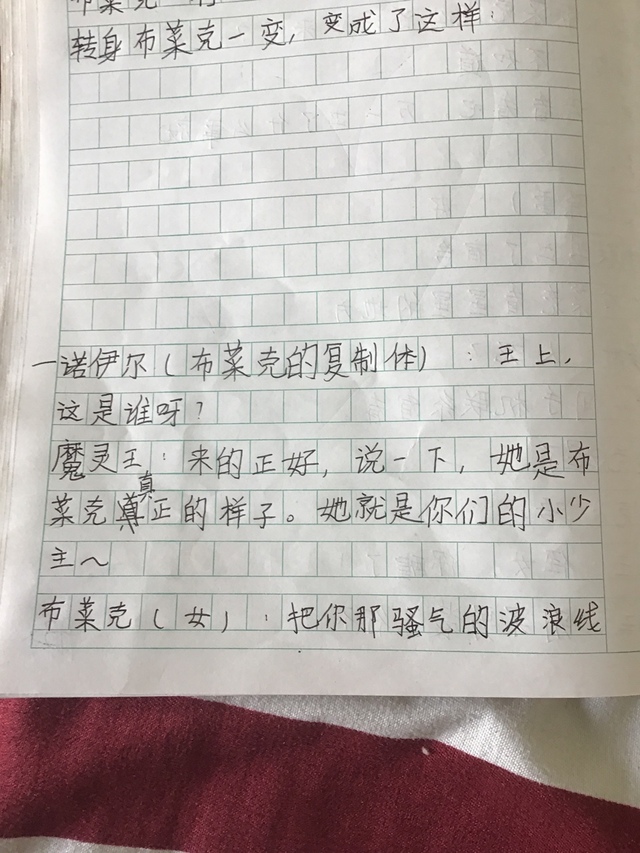 转身布菜克一变，变成了这样：
一诺伊尔（布菜克的复制体）：王上，
这是谁呀？
魔灵王：来的正好，说一下，她是布
菜克真正的样子。她就是你们的小少
主～
布菜克（女）：把你那骚气的波浪线